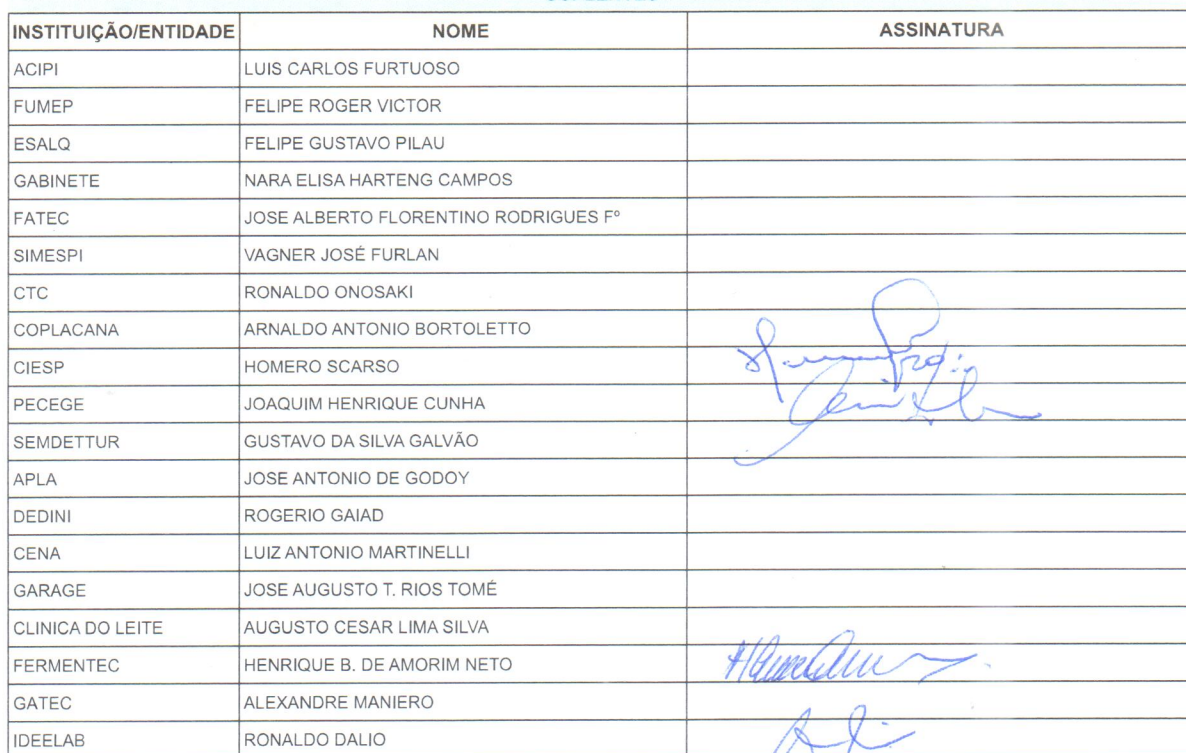 INSTITUIÇÃO/ENTIDADE NOME ASSINATURA
ACIPI LUIS CARLOS FURTUOSO
FUMEP FELIPE ROGER VICTOR
ESALQ FELIPE GUSTAVO PILAU
GABINETE NARA ELISA HARTENG CAMPOS
FATEC JOSE ALBERTO FLORENTINO RODRIGUES Fº
SIMESPI VAGNER JOSÉ FURLAN
CTC RONALDO ONOSAKI
COPLACANA ARNALDO ANTONIO BORTOLETTO
CIESP HOMERO SCARSO
PECEGE JOAQUIM HENRIQUE CUNHA
SEMDETTUR GUSTAVO DA SILVA GALVÃO
APLA JOSE ANTONIO DE GODOY
DEDINI ROGERIO GAIAD
CENA LUIZ ANTONIO MARTINELLI
GARAGE JOSE AUGUSTO T. RIOS TOMÉ
CLINICA DO LEITE AUGUSTO CESAR LIMA SILVA
FERMENTEC HENRIQUE B. DE AMORIM NETO
GATEC ALEXANDRE MANIERO
IDEELAB RONALDO DALIO